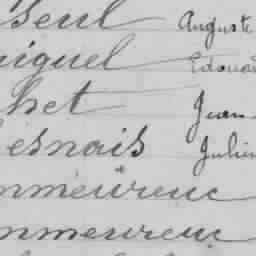 Seul Auguste
iguel Edoua
het Jean
esnais Julien
nmeurenc
nmeurenc